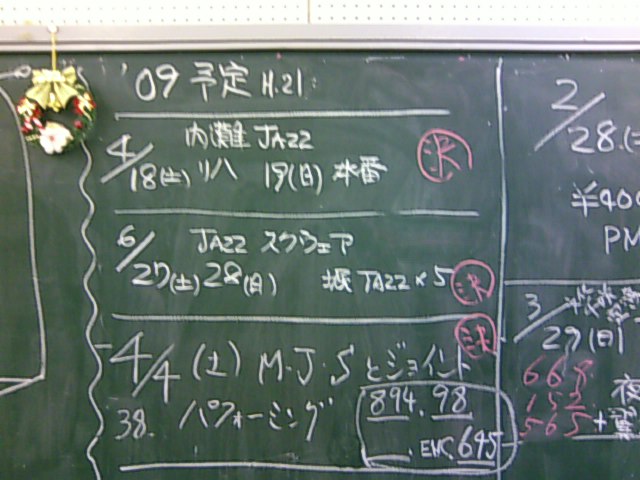 '09 予定 H.21
内灘 JAZZ
4/18(土) リハ 19(日) 本番 決
JAZZ スクウェア
6/27(土) 28(日) 堀 JAZZ×5 決
決
4/4 (土) M・J・S とジョイント
38. パフォーミング
894. 98
EMC. 645
2/28.(土
¥400
PM
3/29(日)
668
152
565 +
夜